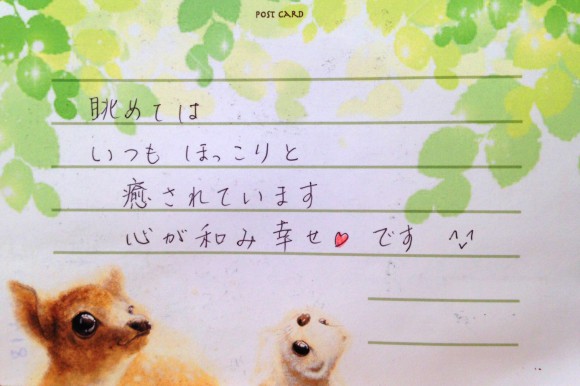 POST CARD
眺めては
いつも ほっこりと
癒されています
心が和み幸せ♥です ^ᵕ^